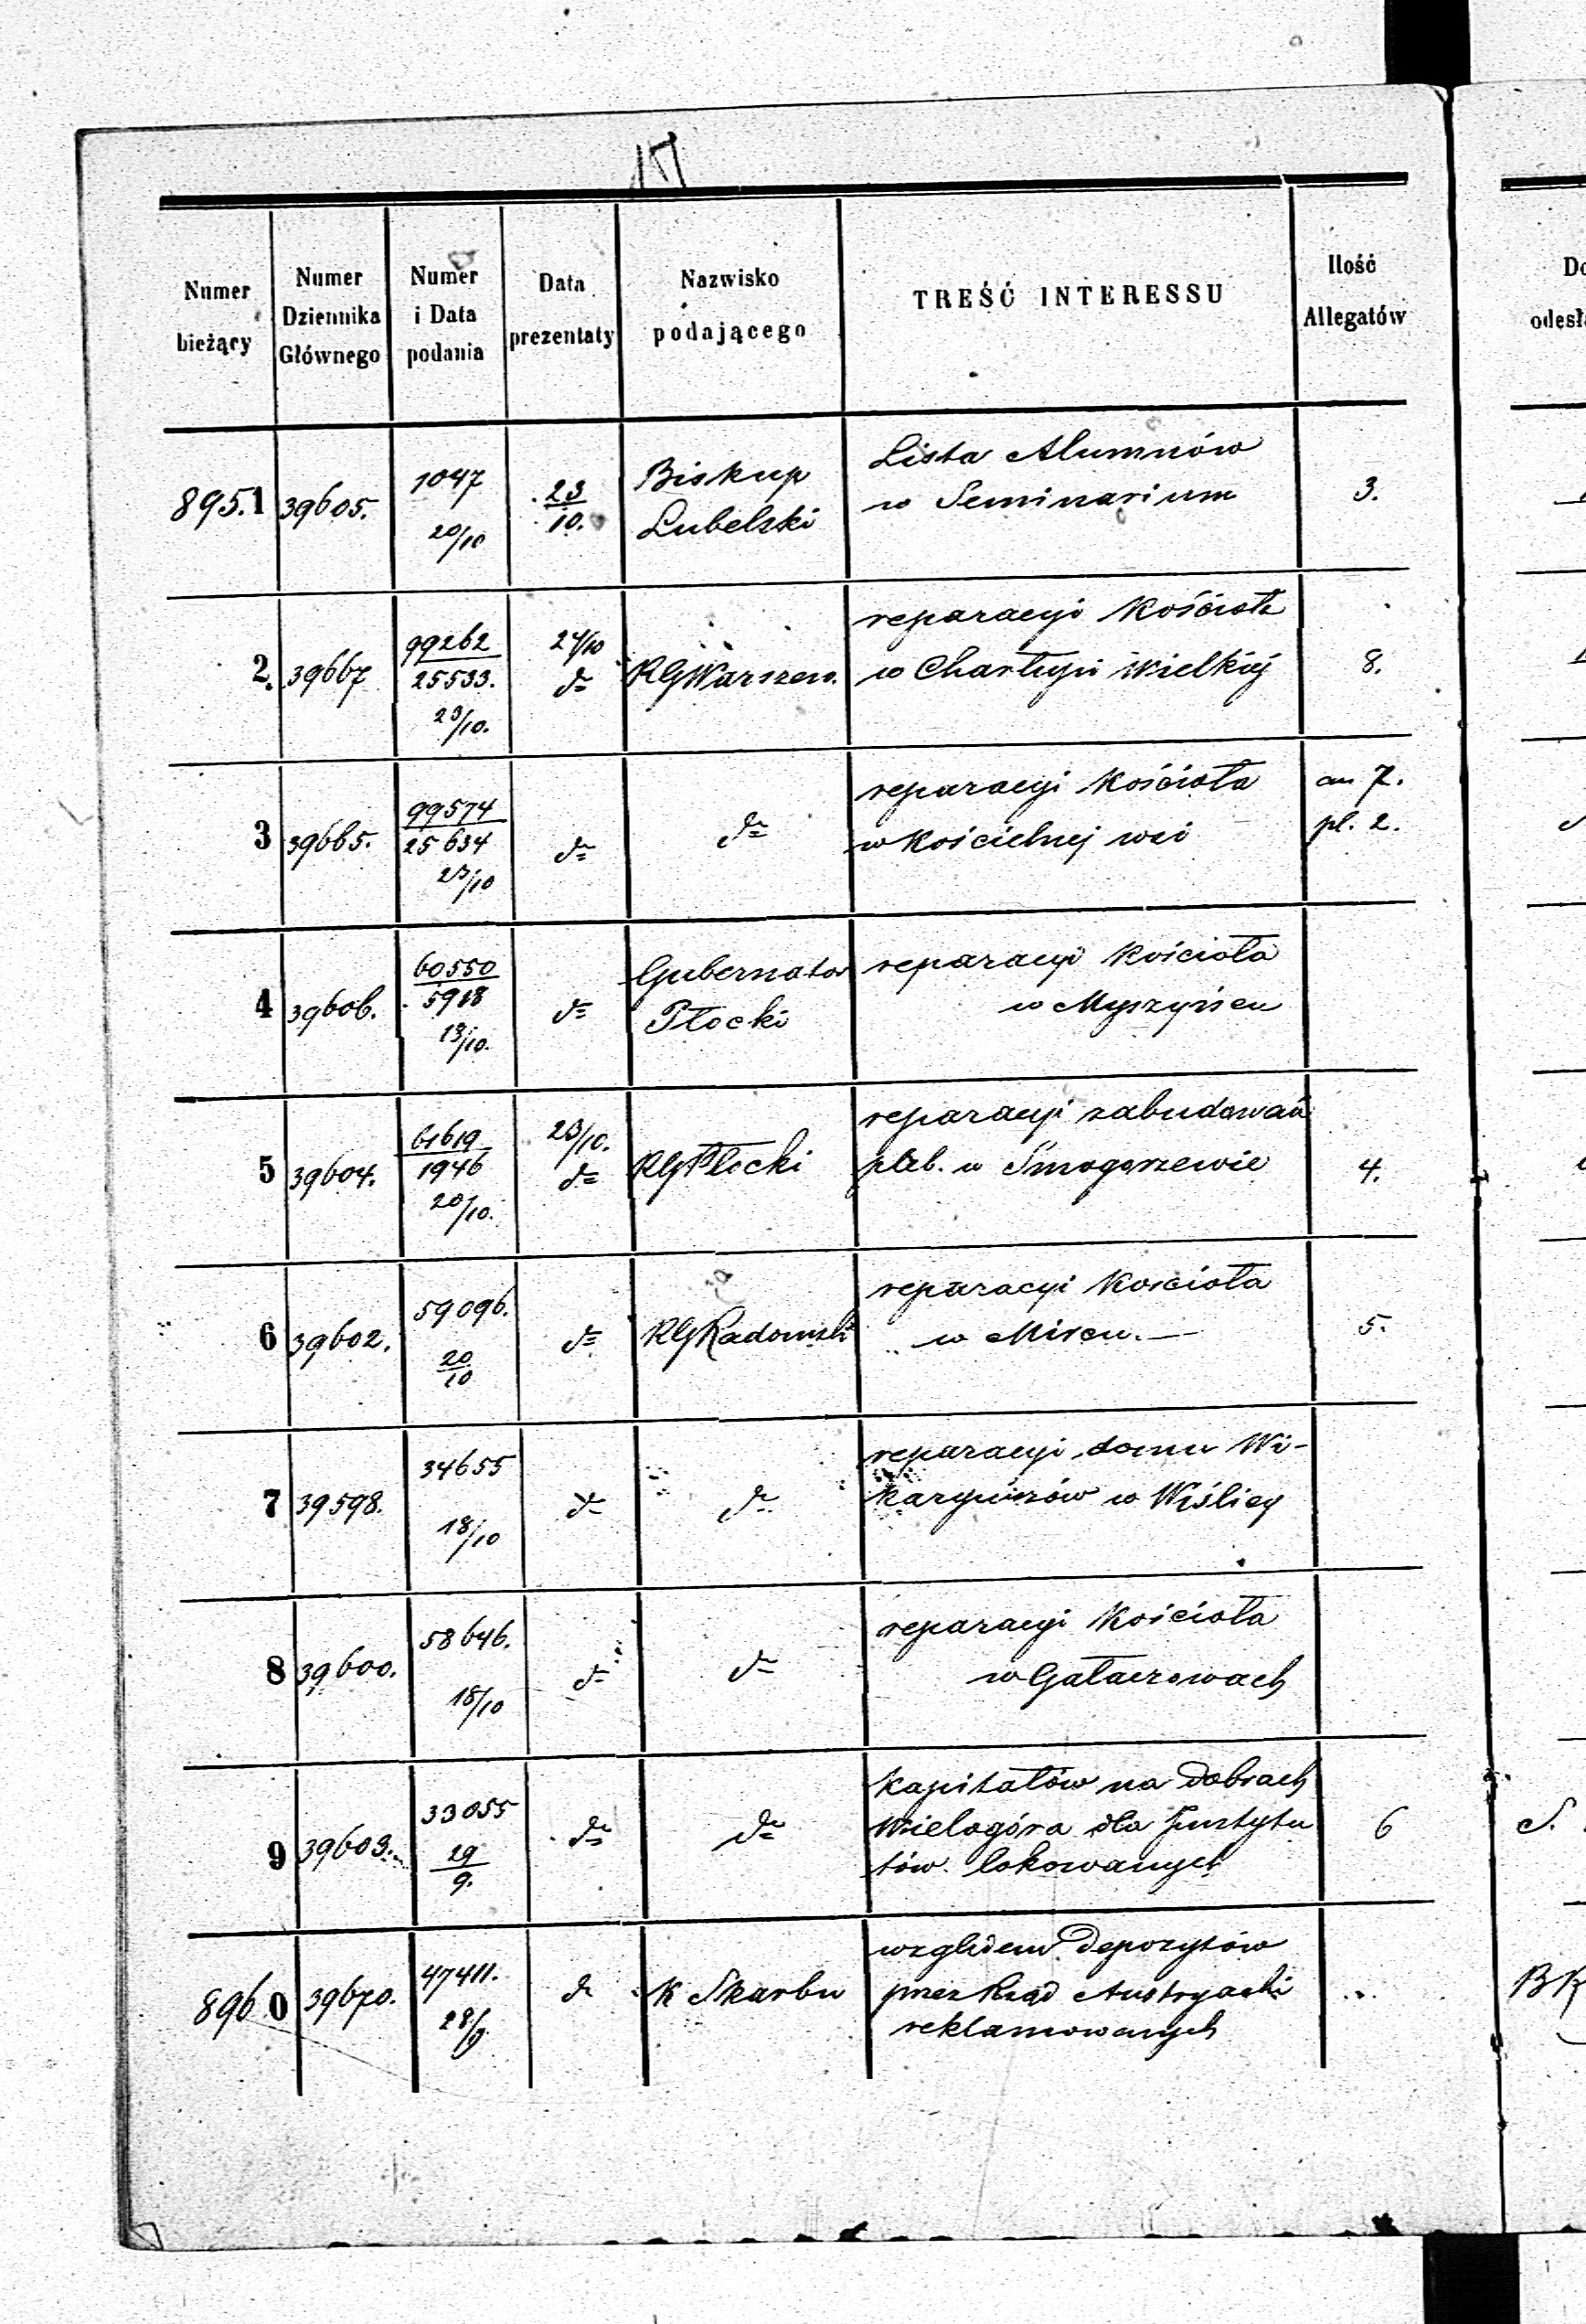 Numer bieżący
Numer Dziennika Głównego
Numer i Data podania
Data prezentaty
Nazwisko podającego
TREŚĆ INTERESSU
Ilość Allegatów
895.1 39605. 1047 20/10 23/10. Biskup Lubelski
Lista Alumnów
w Seminarium
3.
2. 39667 99262/25533. 23/10. 24/10 d= RGWarszew.
reparacyi Kościoła
w Chartupi Wielkiej
8.
3 39665. 99574/25634 23/10 d= d=
reparacyi Kościoła
w Kościelnej wsi
an 7.
pl. 2.
4 39606. 60550/5918 13/10. d= Gubernator Płocki
reparacyi Kościoła
w Myszyńcu
5 39604. 61619/1946 20/10. 23/10. d= RGPłocki
reparacyi zabudowań
pleb. w Smogorzewie
4.
6 39602. 59096. 20/10 d= RGRadomski
reparacyi Kościoła
w Mircu.—
5.
7 39598. 34655 18/10 d= d=
reparacyi domu Wi-
karyuszów w Wiślicy
8 39600. 58646. 18/10 d= d=
reparacyi Kościoła
w Gałaczowach
9 39603. 33055 29/9. d= d=
Kapitałów na Dobrach
Wielogóra dla Instytu
tów lokowanych
6
896 0 39670. 47411. 28/9. d K Skarbu
względem Depozytów
przez Rząd Austryacki
reklamowanych